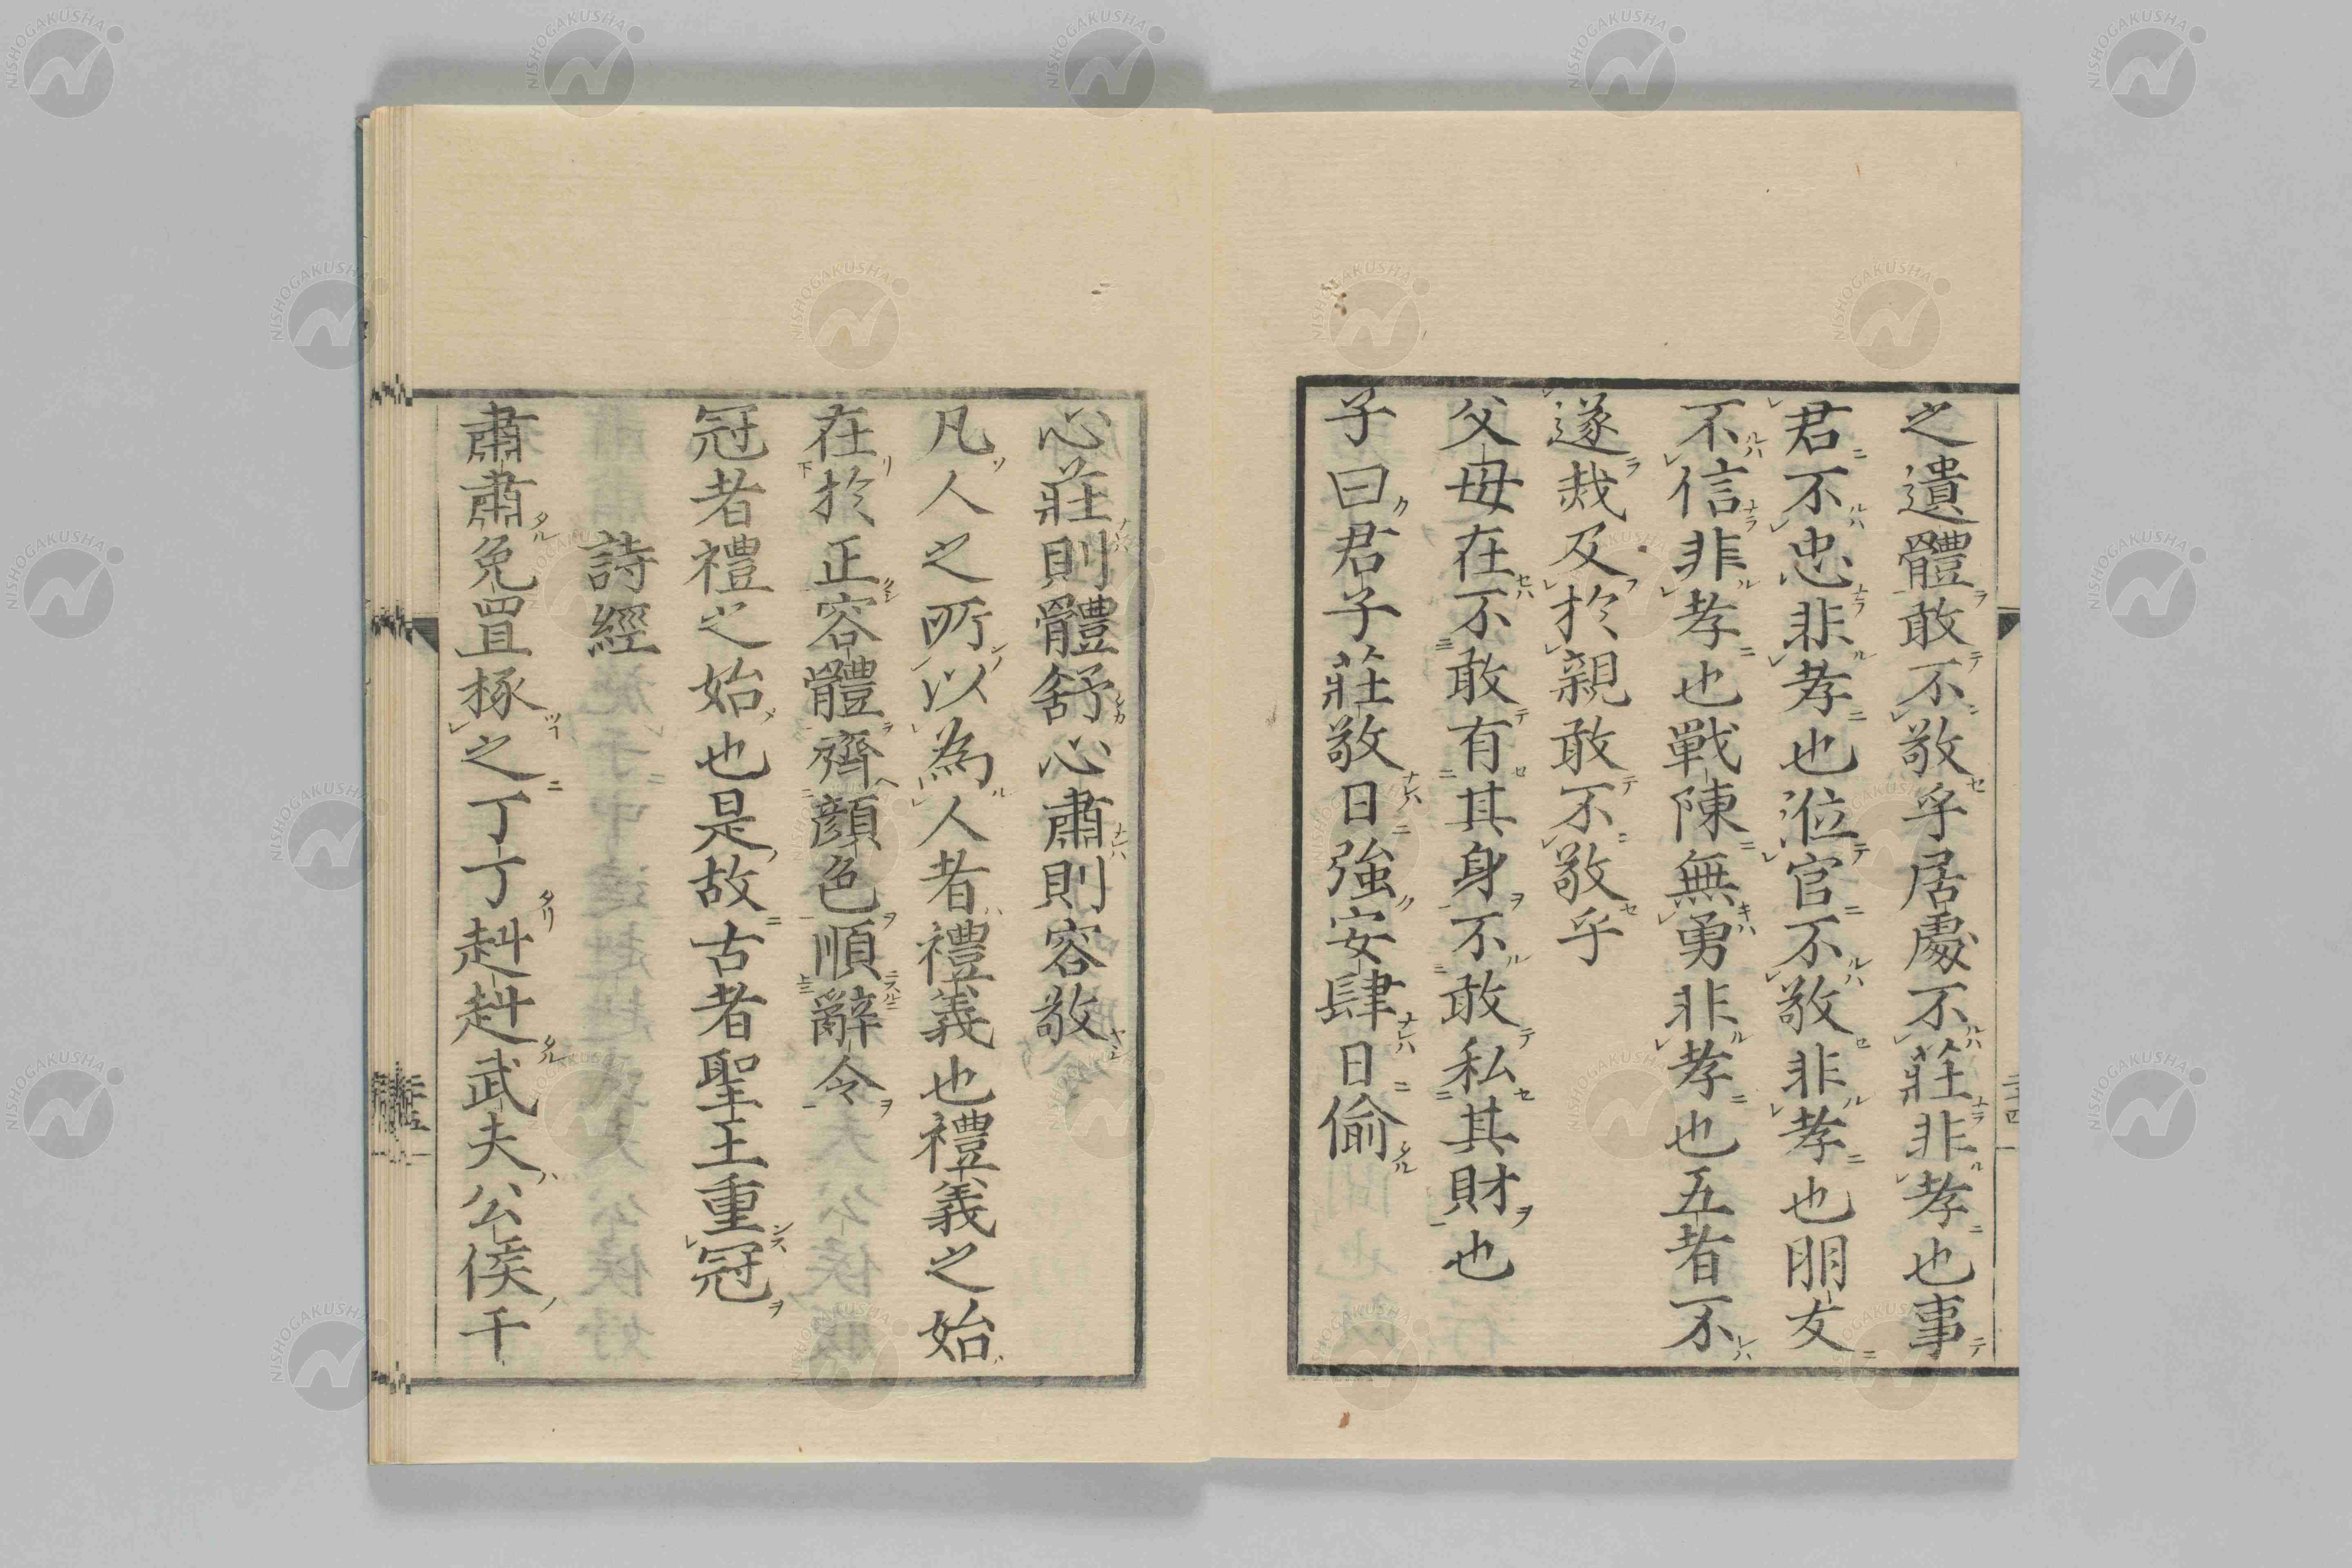 之遺體敢不敬乎居處不莊非孝也事
君不忠非孝也涖官不敬非孝也朋友
不信非孝也戰陳無勇非孝也五者不
遂烖及於親敢不敬乎
父母在不敢有其身不敢私其財也
子曰君子莊敬日強安肆日偷
心莊則體舒心肅則容敬
凡人之所以為人者禮義也禮義之始
在於正容體齊顏色順辭令
冠者禮之始也是故古者聖王重冠
詩經
肅肅兔罝椓之丁丁赳赳武夫公侯干
NISHOGAKUSHA